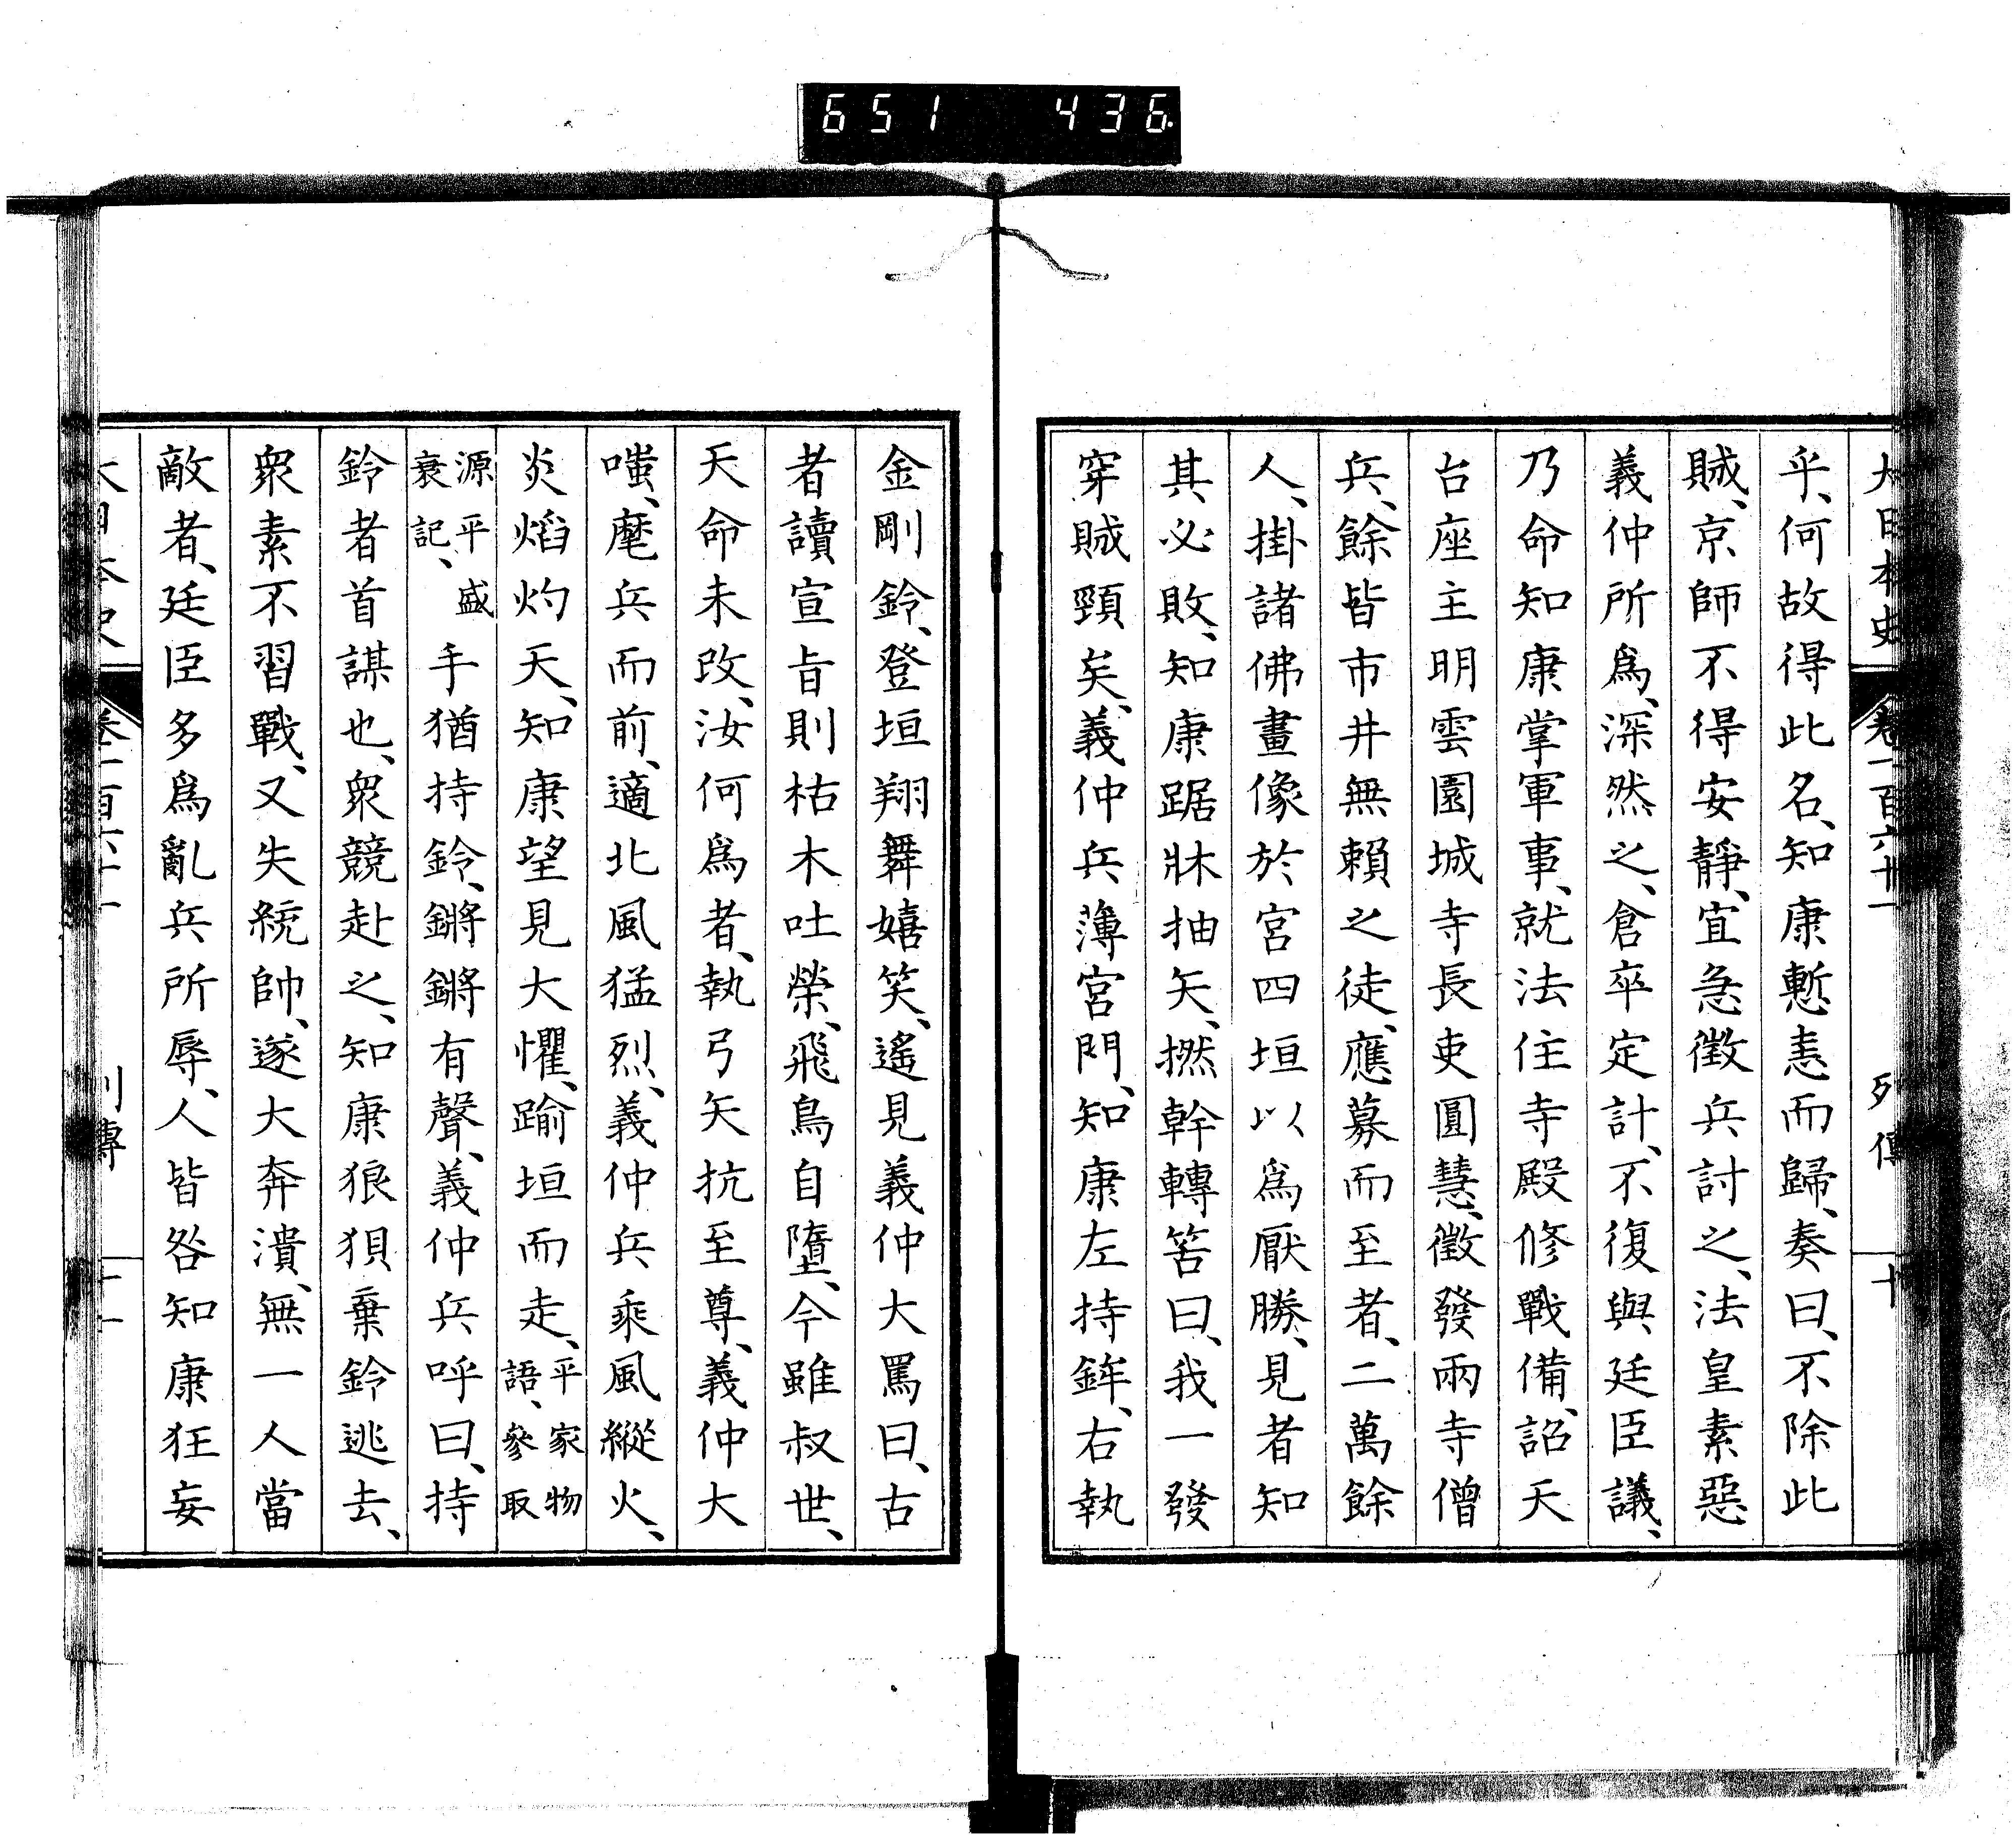 651 436
大日本史 卷一百六十一 列傳 十
乎、何故得此名、知康慙恚而歸、奏曰、不除此
賊、京師不得安靜、宜急徵兵討之、法皇素惡
義仲所爲、深然之、倉卒定計、不復與廷臣議、
乃命知康掌軍事、就法住寺殿修戰備、詔天
台座主明雲園城寺長吏圓慧、徵發兩寺僧
兵、餘皆市井無賴之徒、應募而至者、二萬餘
人、掛諸佛畫像於宮四垣以爲厭勝、見者知
其必敗、知康踞牀抽矢、撚幹轉筈曰、我一發
穿賊頸矣、義仲兵薄宮門、知康左持鉾、右執
金剛鈴、登垣翔舞嬉笑、遙見義仲大罵曰、古
者讀宣旨則枯木吐榮、飛鳥自墮、今雖叔世、
天命未改、汝何爲者、執弓矢抗至尊、義仲大
嗤、麾兵而前、適北風猛烈、義仲兵乘風縱火、
炎焰灼天、知康望見大懼、踰垣而走、平家物語、參取
源平盛衰記、手猶持鈴、鏘鏘有聲、義仲兵呼曰、持
鈴者首謀也、衆競赴之、知康狼狽棄鈴逃去、
衆素不習戰、又失統帥、遂大奔潰、無一人當
敵者、廷臣多爲亂兵所辱、人皆咎知康狂妄
大日本史 卷一百六十一 列傳 十一